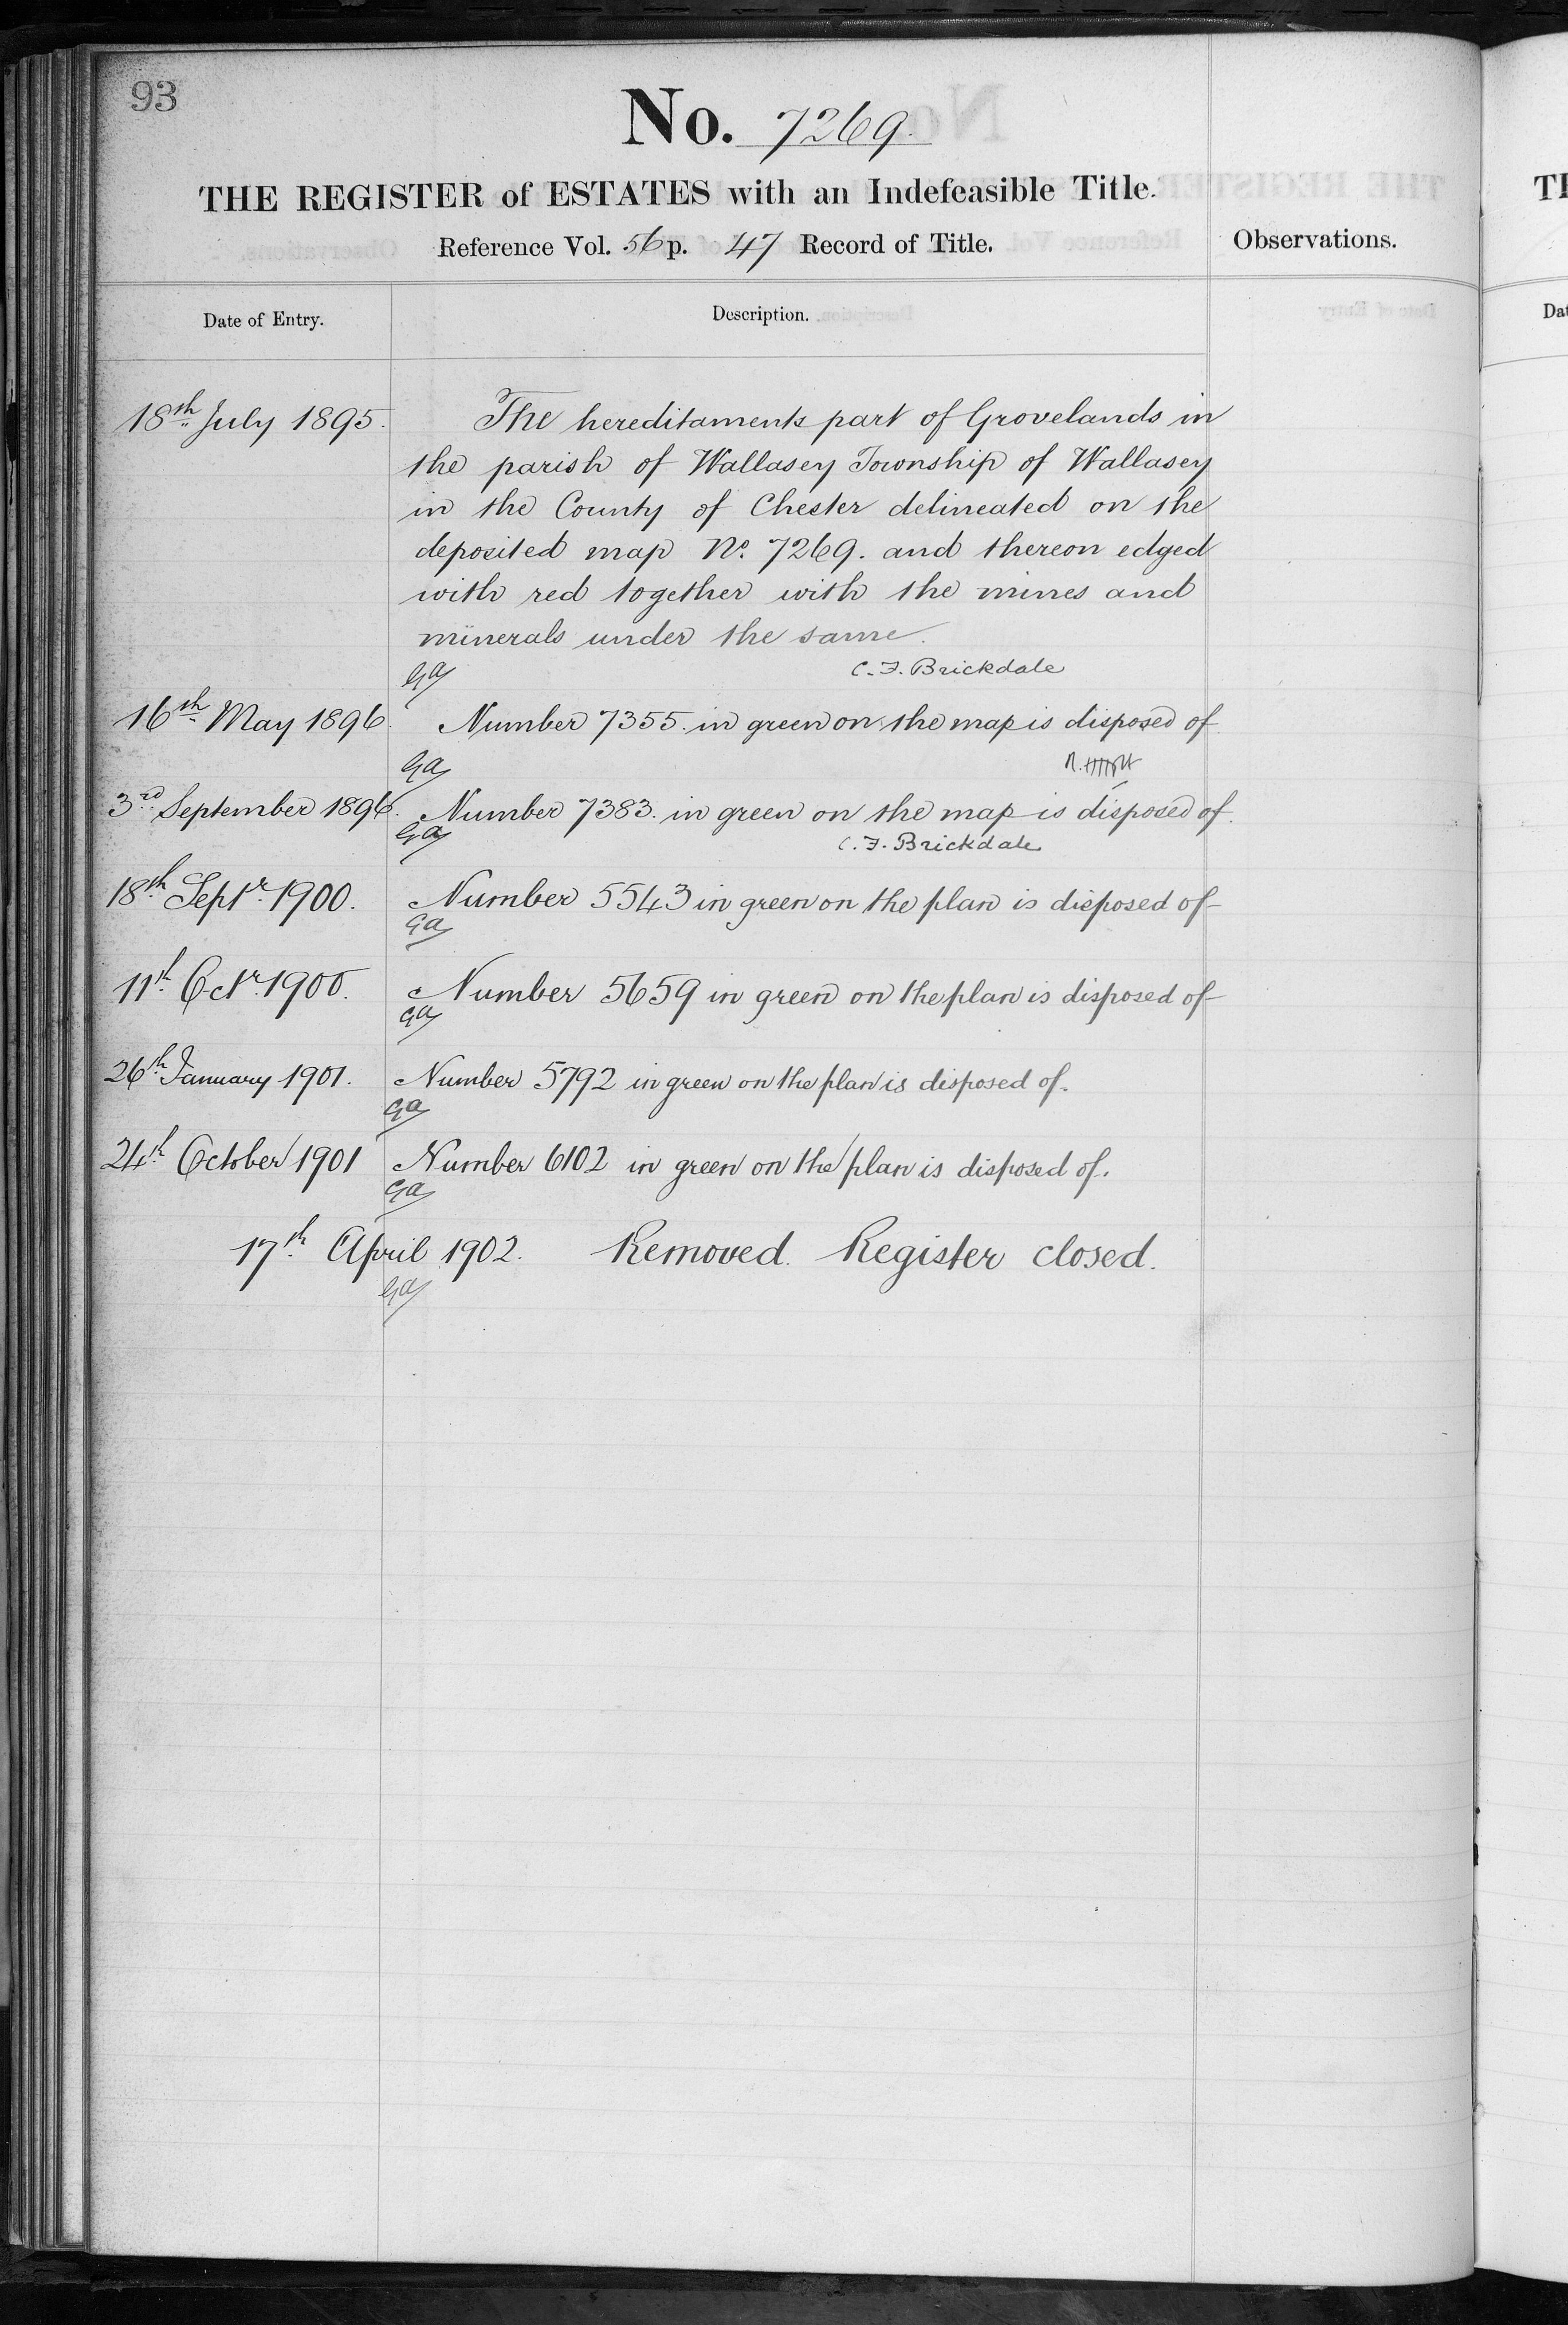 93
No. 7269.
THE REGISTER of ESTATES with an Indefeasible Title.
Reference Vol. 56 p. 47 Record of Title.
Observations.
Date of Entry.
Description.
18th July 1895.
The hereditaments part of Grovelands in
the parish of Wallasey Township of Wallasey
in the County of Chester delineated on the
deposited map No. 7269. and thereon edged
with red together with the mines and
minerals under the same.
Ga C. F. Brickdale
16th May 1896. Number 7355. in green on the map is disposed of
Ga
3rd September 1896. Number 7383. in green on the map is disposed of.
Ga C. F. Brickdale
18th Septr. 1900. Number 5543 in green on the plan is disposed of
Ga
11th Octr. 1900. Number 5659 in green on the plan is disposed of
Ga
26th January 1901. Number 5792 in green on the plan is disposed of.
Ga
24th October 1901 Number 6102 in green on the plan is disposed of.
Ga
17th April 1902. Removed. Register closed.
Ga
TH
Dat